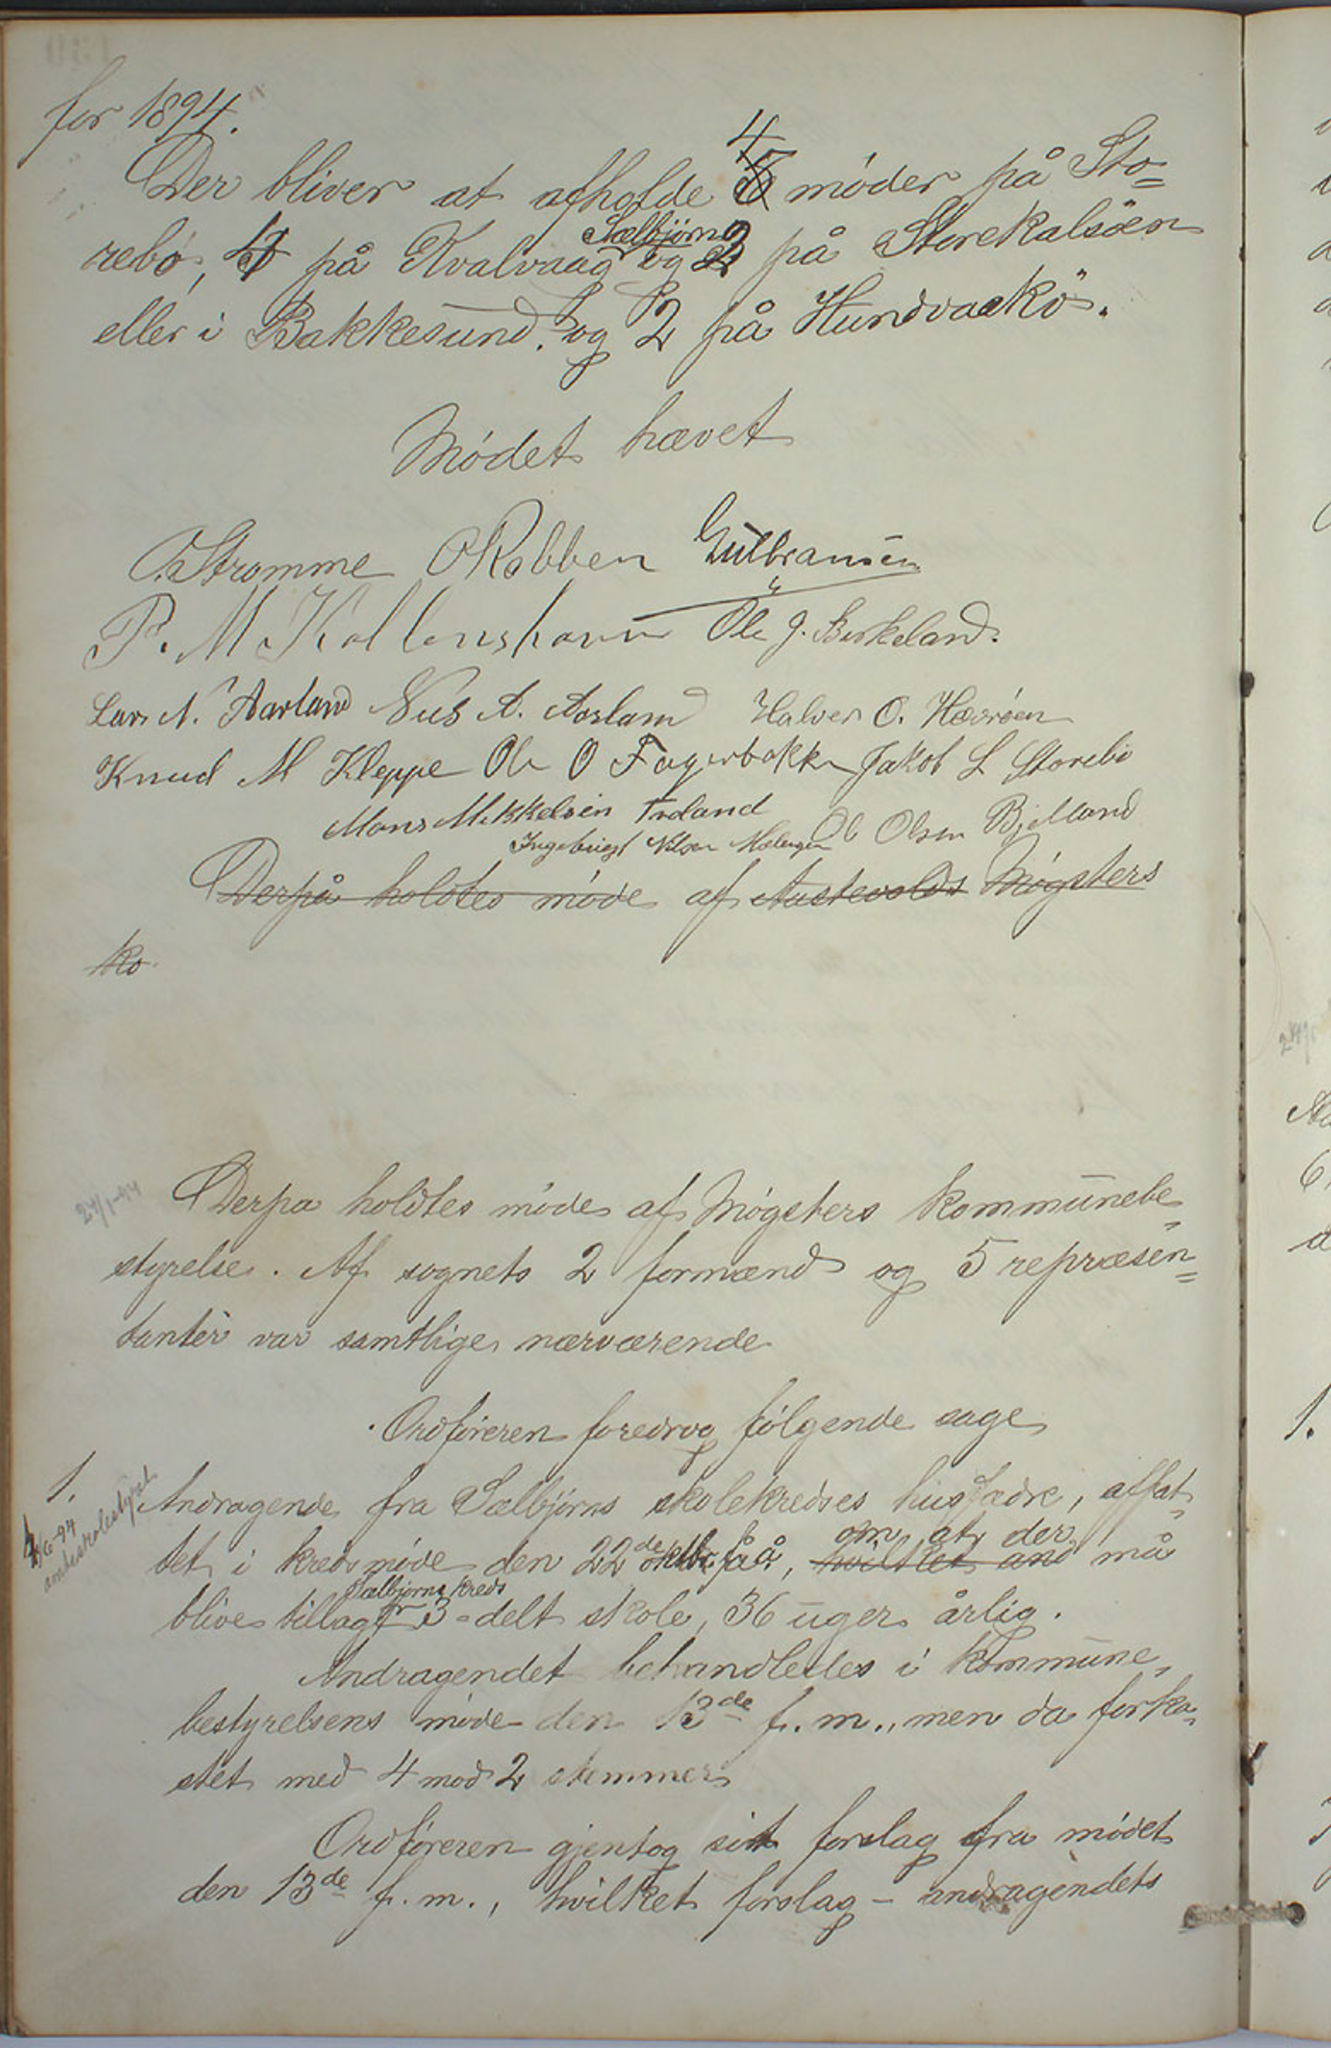 for 1894.
4
Der bliver at afholde 5 møder på Sto=
Sælbjørn
rebø, 4 på Kvalvaag og 2 på Storekalsøen
eller i Bakkesund. og 2 på Hundvaakø.
Mødet hævet
O. Strømme O Rabben Gulbransen
P. M Kallenshavn Ole J. Birkeland.
Lars N. Aarland Nils A. Aasland Halver O. Hævrøen
Knud M Kleppe Ole O Fagerbakke Jakob L Storebø
Mons Mikkelsen Troland Ole Olsen Bjelland
Ingebrigt Nilsen
Derpå holdtes møde af Austevolds Møgsters
ko
24/1-94
Derpa holdtes møde af Møgsters kommunebe=
styrelse. Af sognets 2 formænd og 5 repræsen=
tanter var samtlige nærværende
Ordføreren foredrog følgende sage
1. Andragende fra Sælbjørns skolekredses husfædre, affat=
6-94
amtsskolestyret
om at der
tet i kredsmøde den 22de oktbr. f å, hvilket and må
Sælbjørns kreds
blive tillagt 3-delt skole, 36 uger årlig.
Andragendet behandledes i kommune=
bestyrelsens møde den 13de f. m., men da forka=
stet med 4 mod 2 stemmer
Ordføreren gjentog sit forslag fra mødet
den 13de f. m., hvilket forslag - andragendets
1.